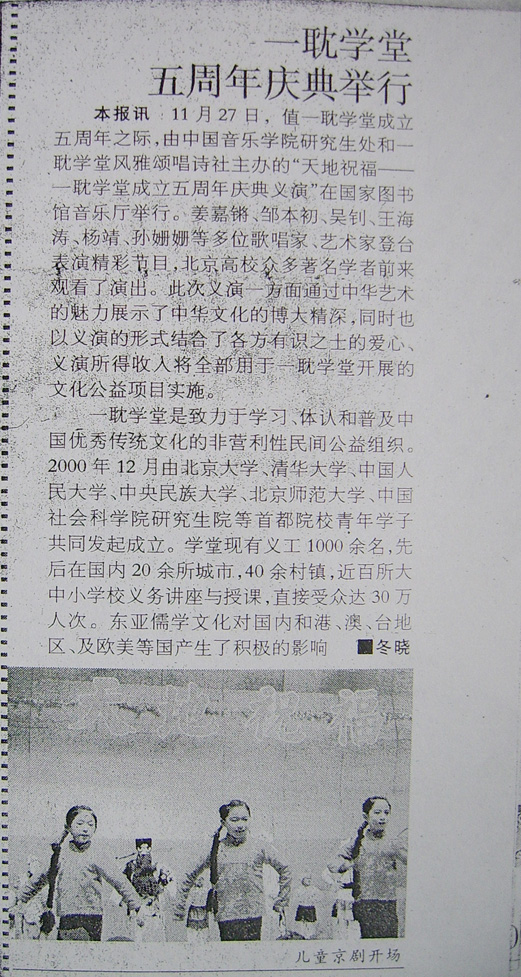 一耽学堂
五周年庆典举行
本报讯 11月27日，值一耽学堂成立
五周年之际，由中国音乐学院研究生处和一
耽学堂风雅颂唱诗社主办的“天地祝福——
一耽学堂成立五周年庆典义演”在国家图书
馆音乐厅举行。姜嘉锵、邹本初、吴钊、王海
涛、杨靖、孙姗姗等多位歌唱家、艺术家登台
表演精彩节目，北京高校众多著名学者前来
观看了演出。此次义演一方面通过中华艺术
的魅力展示了中华文化的博大精深，同时也
以义演的形式结合了各方有识之士的爱心、
义演所得收入将全部用于一耽学堂开展的
文化公益项目实施。
一耽学堂是致力于学习、体认和普及中
国优秀传统文化的非营利性民间公益组织。
2000年12月由北京大学、清华大学、中国人
民大学、中央民族大学、北京师范大学、中国
社会科学院研究生院等首都院校青年学子
共同发起成立。学堂现有义工1000余名，先
后在国内20余所城市，40余村镇，近百所大
中小学校义务讲座与授课，直接受众达30万
人次。东亚儒学文化对国内和港、澳、台地
区、及欧美等国产生了积极的影响 ■冬晓
天地祝福
儿童京剧开场